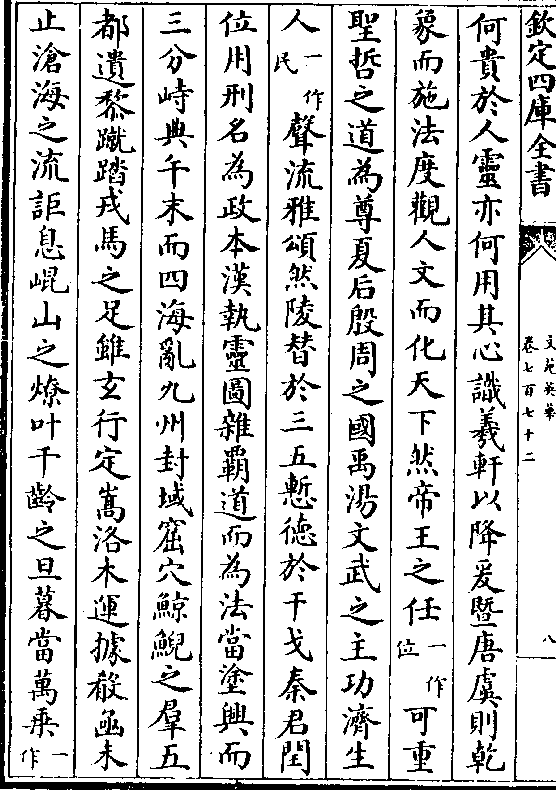 欽定四庫全書
文苑英華
卷七百七十二
八
何貴於人靈亦何用其心識羲軒以降爰暨唐虞則乾
象而施法度觀人文而化天下然帝王之任一作位可重
聖哲之道為尊夏后殷周之國禹湯文武之主功濟生
人一作民聲流雅頌然陵替於三五慙德於干戈秦君閏
位用刑名為政本漢執靈圖雜霸道而為法當塗興而
三分峙典午末而四海亂九州封域窟穴鯨鯢之羣五
都遺黎蹴踏戎馬之足雖玄行定嵩洛木運據殽函未
止滄海之流詎息崐山之燎叶千齡之旦暮當萬乗一作